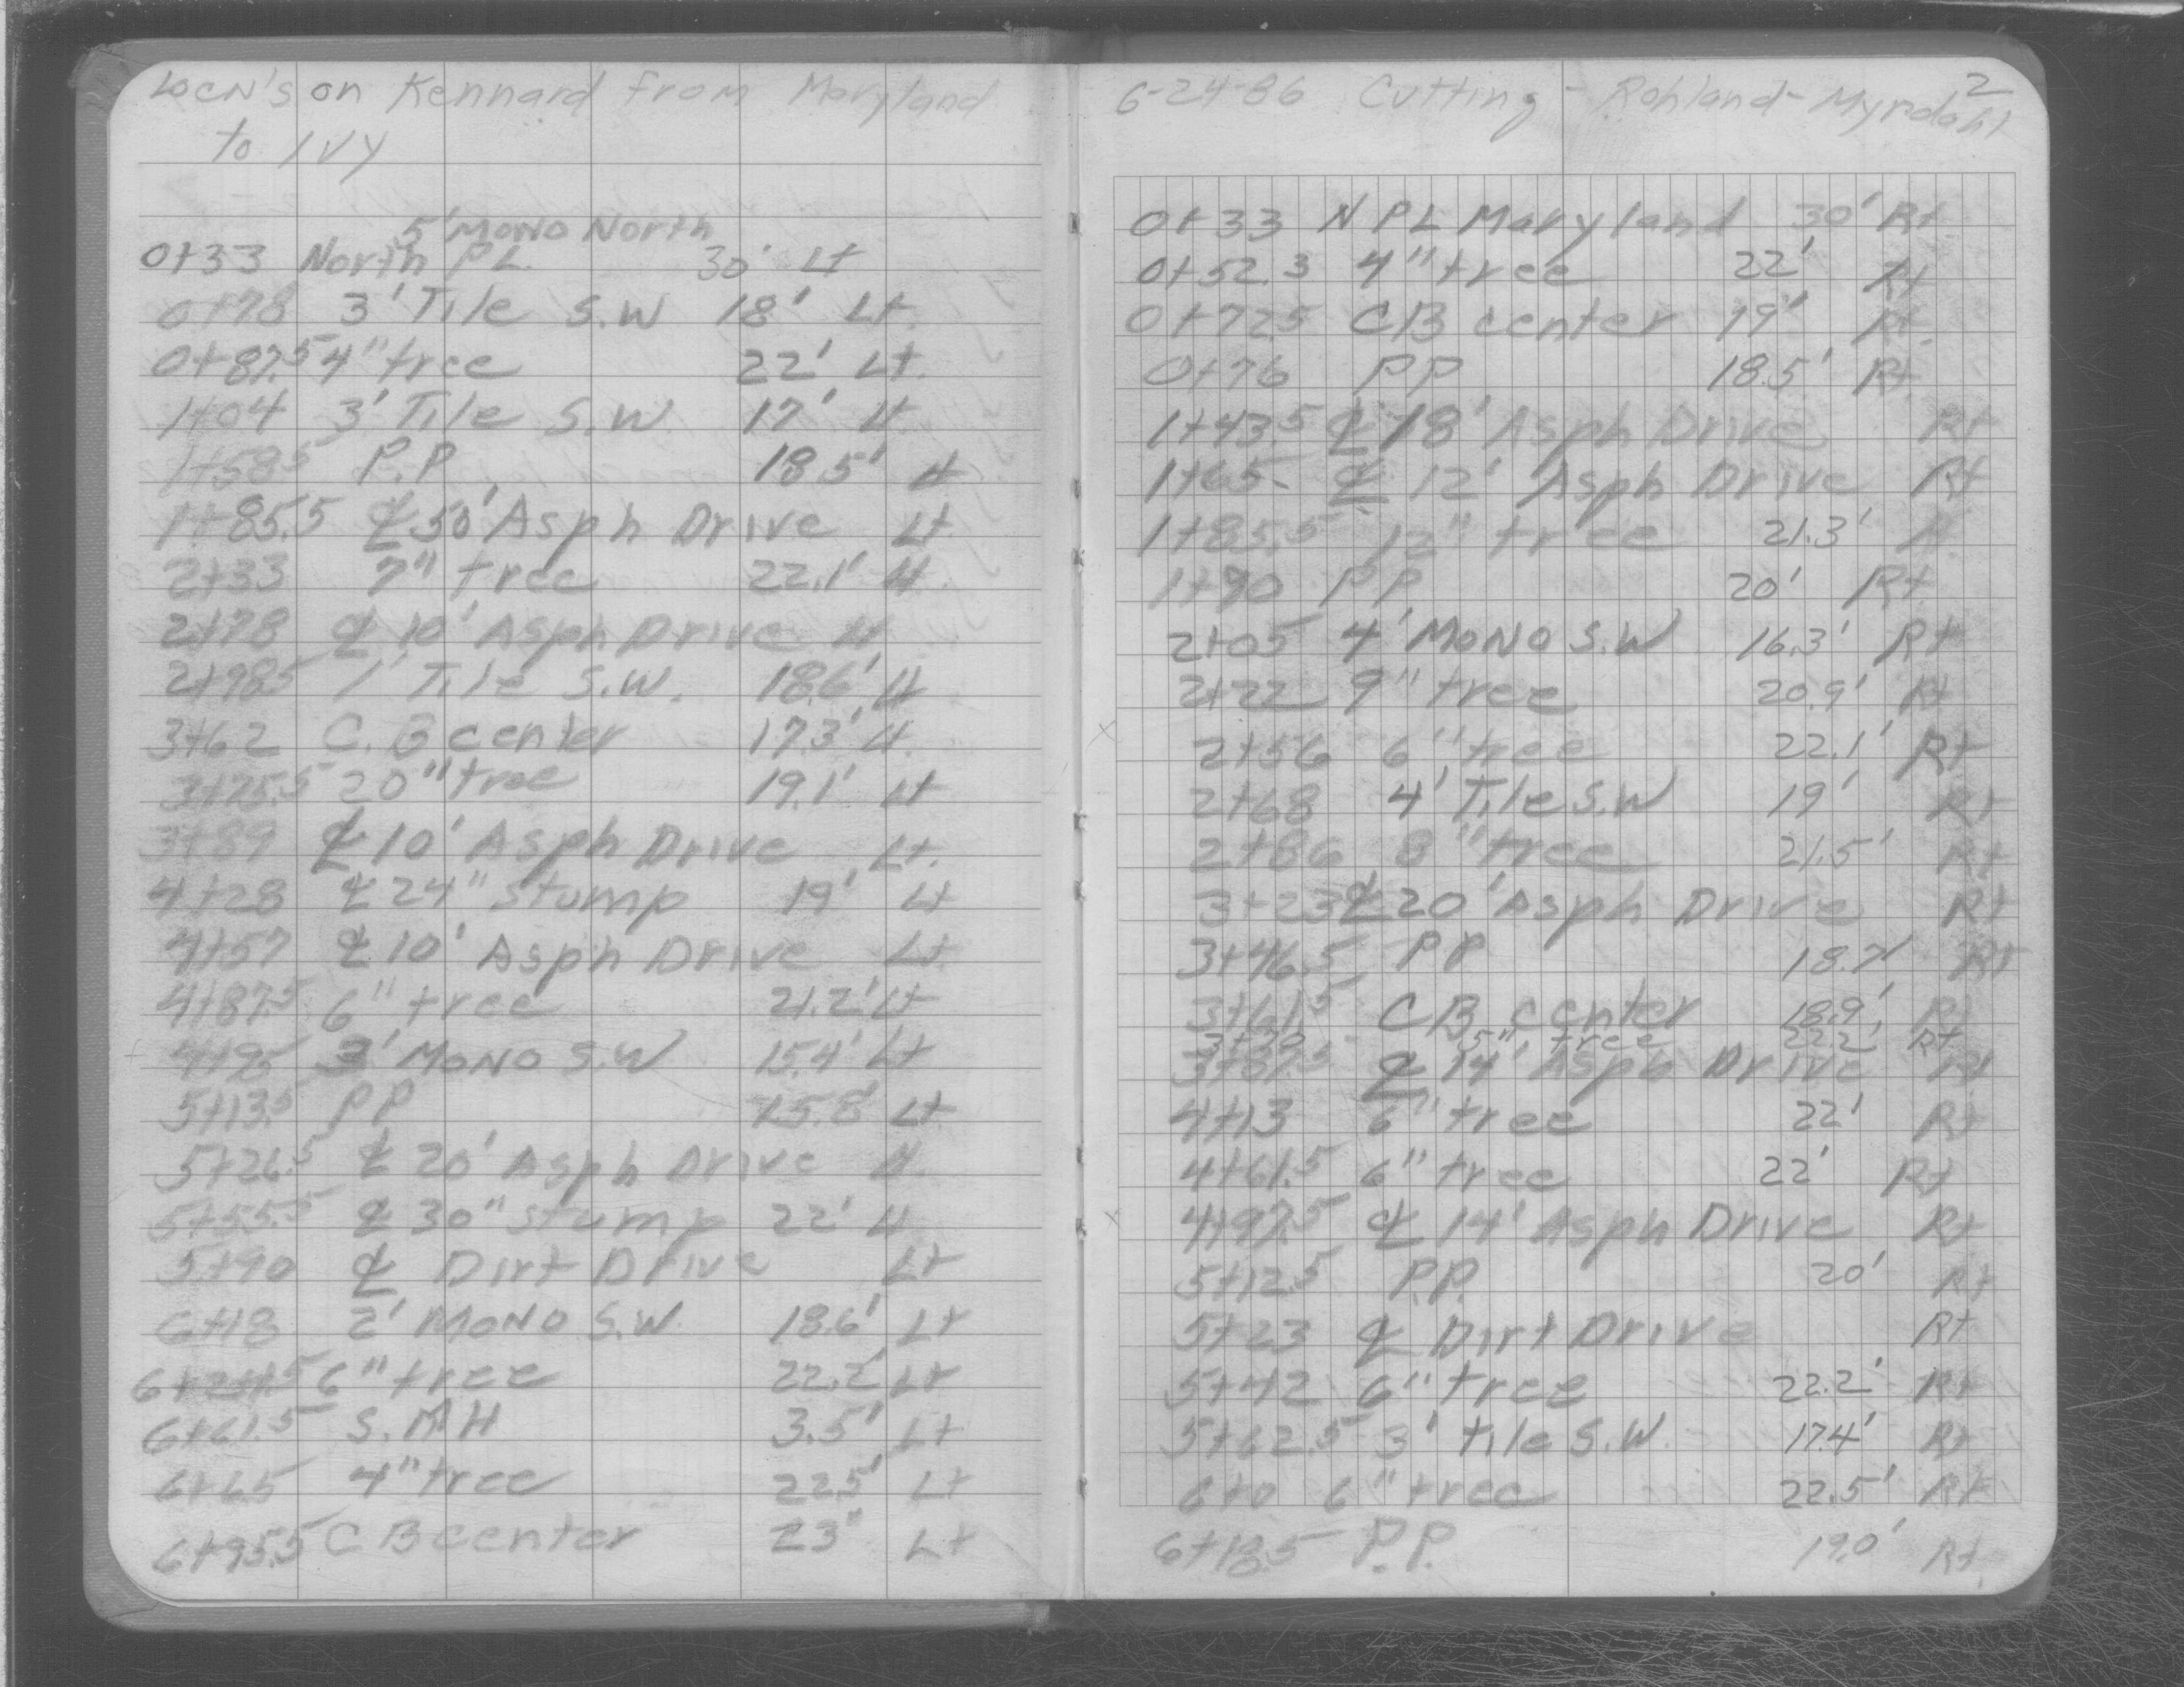 Locn's on Kennard from Maryland
to IVY
5' MONO North
0+33 North PL. 30' Lt
0+78 3' Tile S.W 18' Lt.
0+87.5 4" tree 22' Lt.
1+04 3' Tile S.W 17' Lt
1+58.5 P.P 18.5' Lt
1+85.5 ℄ 50' Asph Drive Lt
2+33 7" tree 22.1' Lt
2+78 ℄ 10' Asph Drive Lt
2+98.5 1' Tile S.W. 18.6' Lt
3+62 C.B center 17.3' Lt.
3+75.5 20" tree 19.1' Lt
3+89 ℄ 10' Asph Drive Lt.
4+28 ℄ 24" Stump 19' Lt
4+57 ℄ 10' Asph Drive Lt.
4+87.5 6" tree 21.2' Lt
4+95 3' MONO S.W 15.4' Lt
5+13.5 PP 15.8' Lt.
5+26.5 ℄ 20' Asph Drive Lt.
5+55.5 ℄ 30" stump 22' Lt
5+90 ℄ Dirt Drive Lt
6+18 2' MONO S.W. 18.6' Lt
6+24.5 6" tree 22.2' Lt
6+61.5 S.MH 3.5' Lt
6+65 4" tree 22.5' Lt
6+95.5 CB center 23" Lt
6-24-86 Cutting - Rohland - Myrdahl 2
0+33 N PL Maryland 30' Rt.
0+52.3 4" tree 22' Rt
0+72.5 CB center 19' Rt.
0+76 PP 18.5' Rt.
1+43.5 ℄ 18' Asph Drive Rt
1+65 ℄ 12' Asph Drive Rt
1+85.5 12" tree 21.3' Rt
1+90 PP 20' Rt
2+05 4' MONO S.W 16.3' Rt
2+22 9" tree 20.9' Rt
2+56 6" tree 22.1' Rt
2+68 4' Tile S.W 19' Rt
2+86 8" tree 21.5' Rt
3+23 ℄ 20' Asph Drive Rt
3+46.5 PP 18.7' Rt
3+61.5 CB center 18.9' Rt
3+70 5" tree 22.2' Rt
3+87.5 ℄ 14' Asph Drive Rt
4+13 6" tree 22' Rt
4+61.5 6" tree 22' Rt
4+97.5 ℄ 14' Asph Drive Rt
5+12.5 P.P. 20' Rt
5+23 ℄ Dirt Drive Rt
5+42 6" tree 22.2' Rt
5+62.5 3' tile S.W. 17.4' Rt
6+0 6" tree 22.5' Rt
6+18.5 P.P. 19.0' Rt.